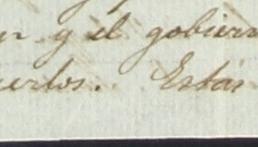 y el gobiern
uertos. Estas